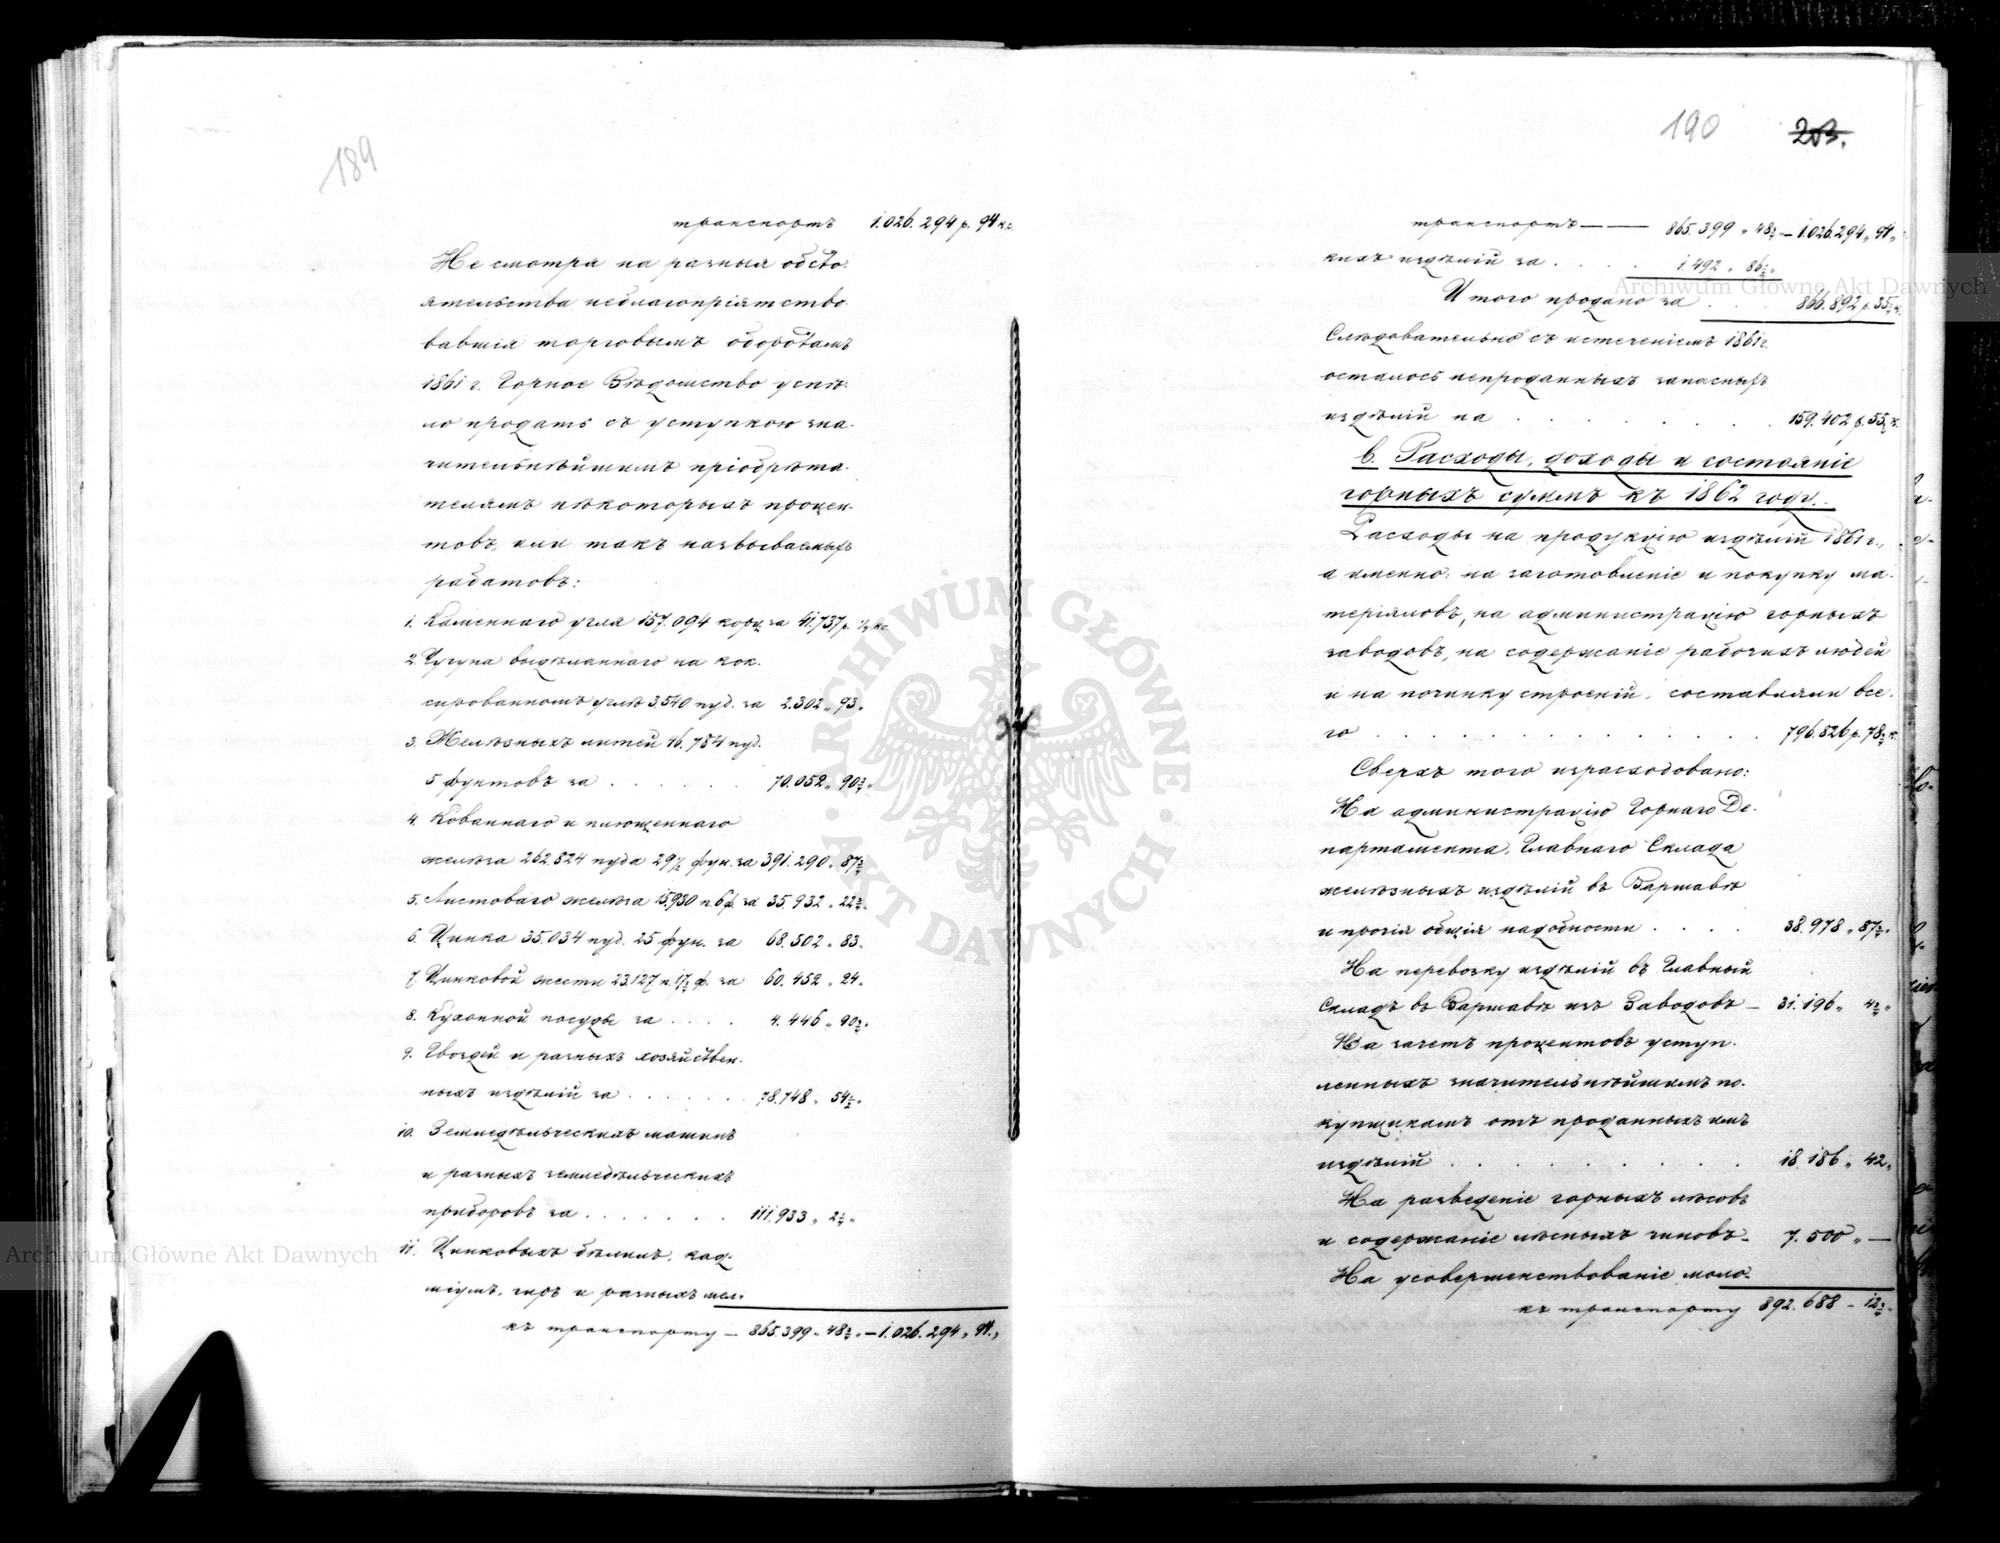 189
транспортъ 1.026.294 р. 94 к.
Не смотря на разныя обсто-
ятельства неблагопріятство-
вавшія торговымъ оборотамъ
1861 г. Горное Вѣдомство успѣ-
ло продать съ уступкою зна-
чительнѣйшимъ пріобрѣта-
телямъ нѣкоторыхъ процен-
товъ, или такъ называемыхъ
рабатовъ:
1. Каменнаго угля 157.094 корц. за 41.737 р. ½ к.
2. Чугуна выдѣланнаго на кок-
сированномъ углѣ 3.540 пуд. за 2.302 " 93 "
3. Желѣзныхъ литей 46.784 пуд.
5 фунтовъ за . . . . . . 70.052 " 90½ "
4. Кованнаго и плющеннаго
желѣза 262.824 пуда 29½ фун. за 391.290 " 87½
5. Листоваго желѣза 15.930 п. 6 ф. за 35.932 " 22½ "
6. Цинка 35.034 пуд. 25 фун. за 68.502 " 83 "
7. Цинковой жести 23.127 п. 17½ ф. за 60.452 " 24 "
8. Кухонной посуды за . . . . 4.446 " 90½ "
9. Гвоздей и разныхъ хозяйствен-
ныхъ издѣлій за . . . . . . . 78.748 " 54½ "
10. Земледѣльческихъ машинъ
и разныхъ земледѣльческихъ
приборовъ за . . . . . . . 111.933 " 2½ "
11. Цинковыхъ бѣлилъ, кад-
міумъ, гирь и разныхъ мел-
къ транспорту — 865.399 " 48½ " — 1.026.294 " 94 "
190 203.
транспортъ — — 865.399 " 48½ — 1.026.294 " 94 "
кихъ издѣлій за . . . . 1.492 " 86½ "
И того продано за . . . 866.892 р. 35½ к.
Слѣдовательно съ истеченіемъ 1861 г.
осталось непроданныхъ запасныхъ
издѣлій на . . . . . . . . 159.402 р. 55½ к.
в. Расходы, доходы и состояніе
горныхъ суммъ къ 1862 году.
Расходы на продукцію издѣлій 1861 г.,
а именно: на заготовленіе и покупку ма-
теріаловъ, на администрацію горныхъ
заводовъ, на содержаніе рабочихъ людей
и на починку строеній, составляли все-
го . . . . . . . . . . . . . . 796.826 р. 78½ к.
Сверхъ того израсходовано:
На администрацію Горнаго Де-
партамента, Главнаго Склада
желѣзныхъ издѣлій въ Варшавѣ
и прочія общія надобности . . . . 38.978 " 87½ "
На перевозку издѣлій въ Главный
Складъ въ Варшавѣ изъ Заводовъ — 31.196 " 4½ "
На зачетъ процентовъ уступ-
ленныхъ значительнѣйшимъ по-
купщикамъ отъ проданныхъ имъ
издѣлій . . . . . . . . . . 18.186 " 42 "
На разведеніе горныхъ лѣсовъ
и содержаніе лѣсныхъ чиновъ — 7.500 " —
На усовершенствованіе моло-
къ транспорту 892.688 — 12½ "
Archiwum Główne Akt Dawnych
Archiwum Główne Akt Dawnych
ARCHIWUM GŁÓWNE · AKT DAWNYCH ·